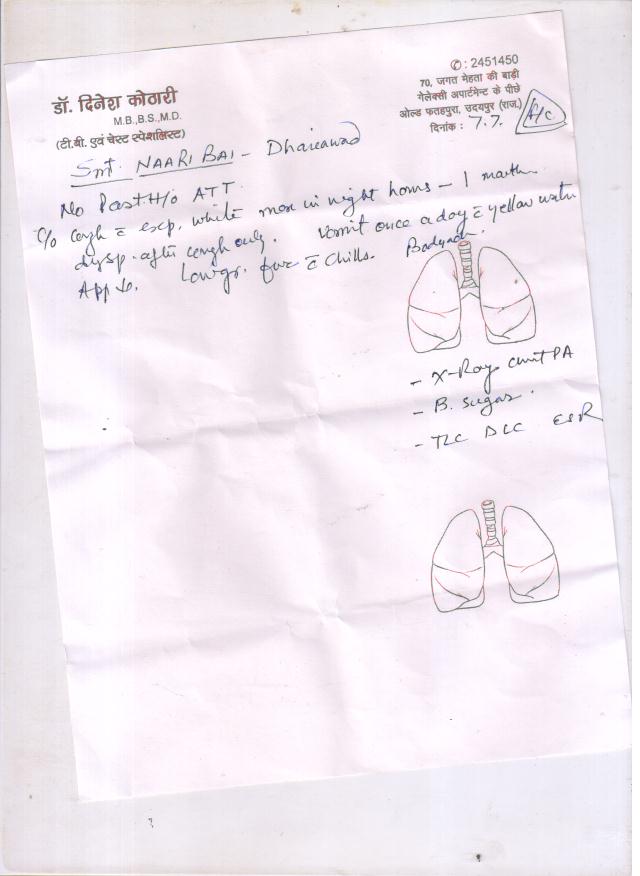 डॉ. दिनेश कोठारी
M.B.,B.S.,M.D.
(टी.बी. एवं चेस्ट स्पेशलिस्ट)
✆ : 2451450
70, जगत मेहता की बाड़ी
गेलेक्सी अपार्टमेन्ट के पीछे
ओल्ड फतहपुरा, उदयपुर (राज.)
दिनांक : 7.7.
A/C
Smt. NAARI BAI - Dhariawad
No Past H/o ATT.
C/o cough c̄ exp. white more in night hours - 1 month
dysp. after cough only. Vomit once a day c̄ yellow water
App ↓. Low gr. c̄ chills. Bodyache.
- X-Ray chest PA
- B. Sugar.
- TLC DLC ESR